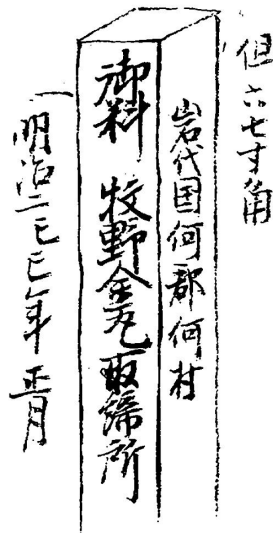 但六七寸角
岩代国何郡何村
御料 牧野金丸取締所
明治二己巳年 正月